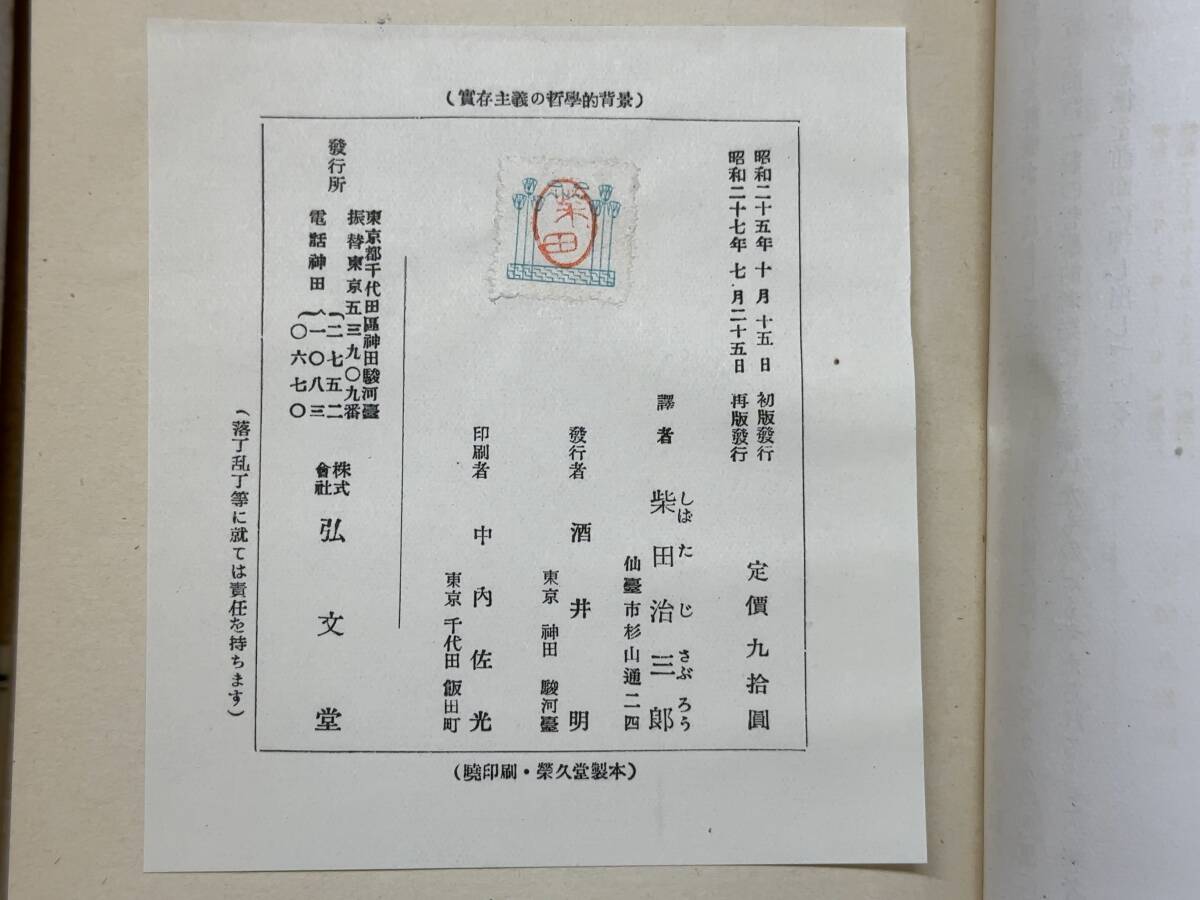 (實存主義の哲學的背景)
昭和二十五年十月十五日 初版發行
昭和二十七年七月二十五日 再版發行
定價九拾圓
譯者 柴田治三郎
しばたじさぶろう
仙臺市杉山通二四
發行者 酒井明
東京 神田 駿河臺
印刷者 中内佐光
東京 千代田 飯田町
柴田
發行所
東京都千代田區神田駿河臺
振替東京五三九〇九番
電話神田
二七五二
一〇八三
〇六七〇
株式會社 弘文堂
(落丁乱丁等に就ては責任を持ちます)
(曉印刷・榮久堂製本)